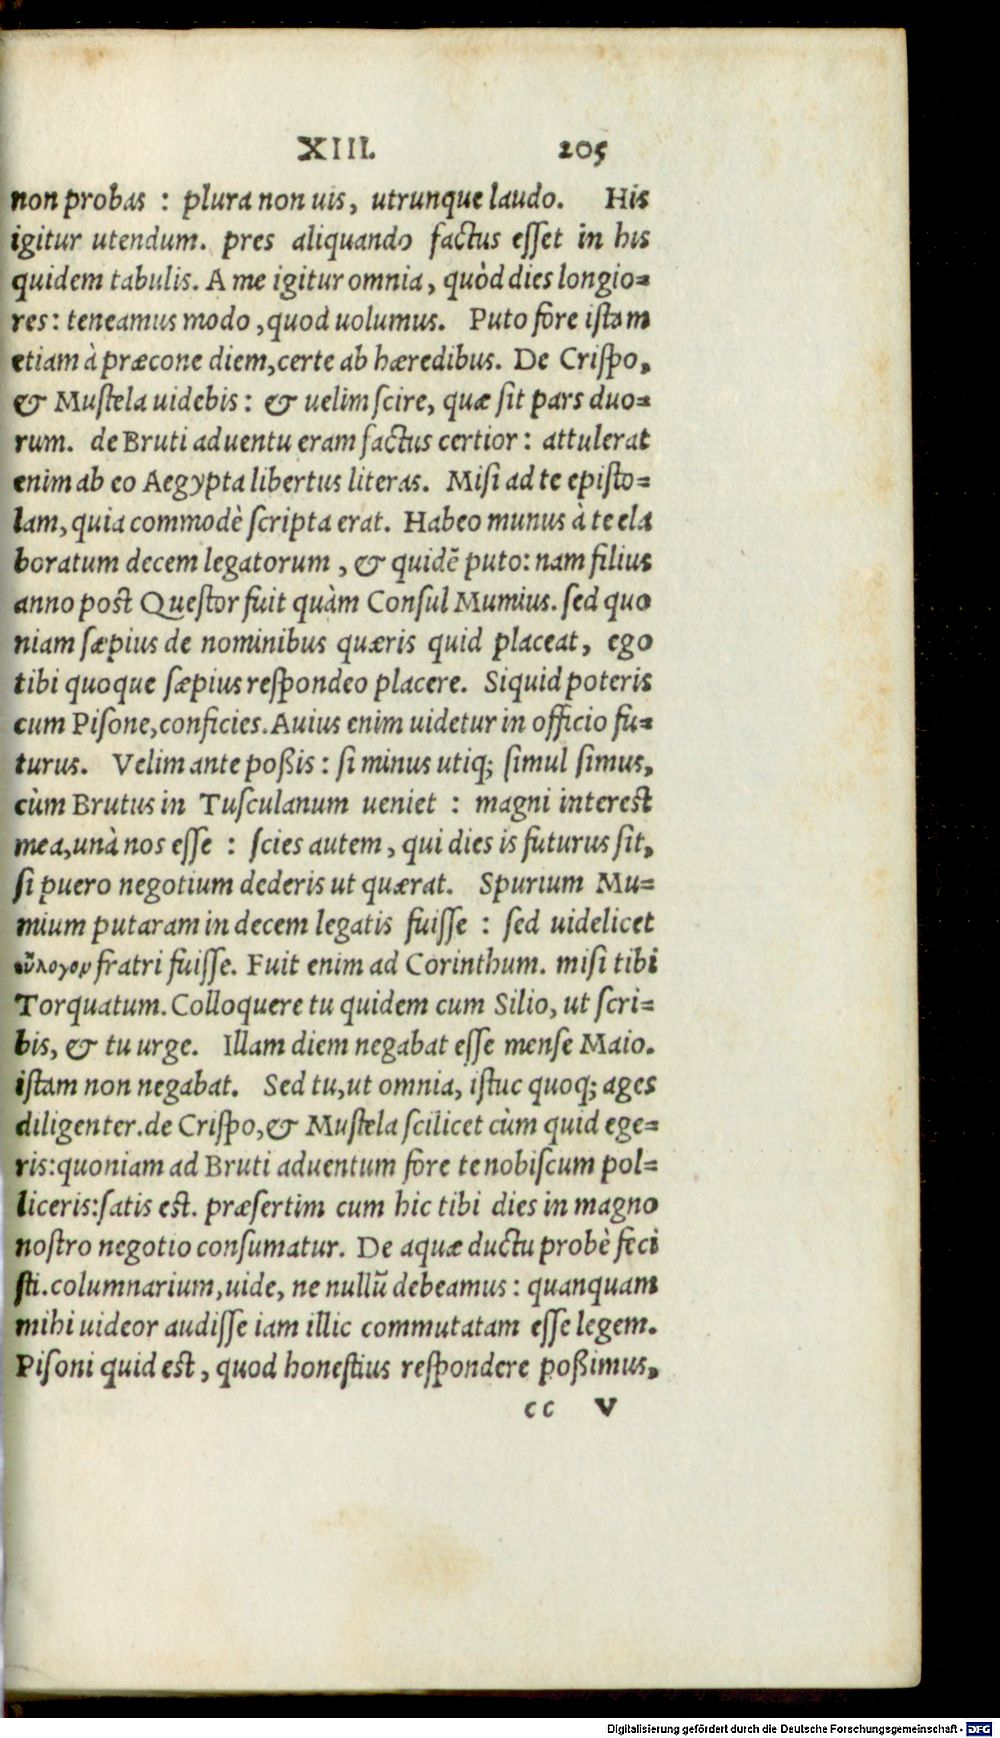 XIII. 205
non probas : plura non uis, utrunque laudo. His
igitur utendum. pres aliquando factus esset in his
quidem tabulis. A me igitur omnia, quòd dies longio=
res: teneamus modo, quod uolumus. Puto fore istam
etiam à præcone diem, certe ab hæredibus. De Crispo,
& Mustela uidebis: & uelim scire, quæ sit pars duo=
rum. de Bruti aduentu eram factus certior: attulerat
enim ab eo Aegypta libertus literas. Misi ad te episto=
lam, quia commodè scripta erat. Habeo munus à te ela
boratum decem legatorum, & quidẽ puto: nam filius
anno post Questor fuit quàm Consul Mumius. sed quo
niam sæpius de nominibus quæris quid placeat, ego
tibi quoque sæpius respondeo placere. Siquid poteris
cum Pisone, conficies. Auius enim uidetur in officio fu=
turus. Velim ante poßis: si minus utiq; simul simus,
cùm Brutus in Tusculanum ueniet : magni interest
mea, unà nos esse : scies autem, qui dies is futurus sit,
si puero negotium dederis ut quærat. Spurium Mu=
mium putaram in decem legatis fuisse : sed uidelicet
εὔλογον fratri fuisse. Fuit enim ad Corinthum. misi tibi
Torquatum. Colloquere tu quidem cum Silio, ut scri=
bis, & tu urge. Illam diem negabat esse mense Maio.
istam non negabat. Sed tu, ut omnia, istuc quoq; ages
diligenter. de Crispo, & Mustela scilicet cùm quid ege=
ris: quoniam ad Bruti aduentum fore te nobiscum pol=
liceris: satis est. præsertim cum hic tibi dies in magno
nostro negotio consumatur. De aquæ ductu probè feci
sti. columnarium, uide, ne nullũ debeamus: quanquam
mihi uideor audisse iam illic commutatam esse legem.
Pisoni quid est, quod honestius respondere poßimus,
cc V
Digitalisierung gefördert durch die Deutsche Forschungsgemeinschaft - DFG